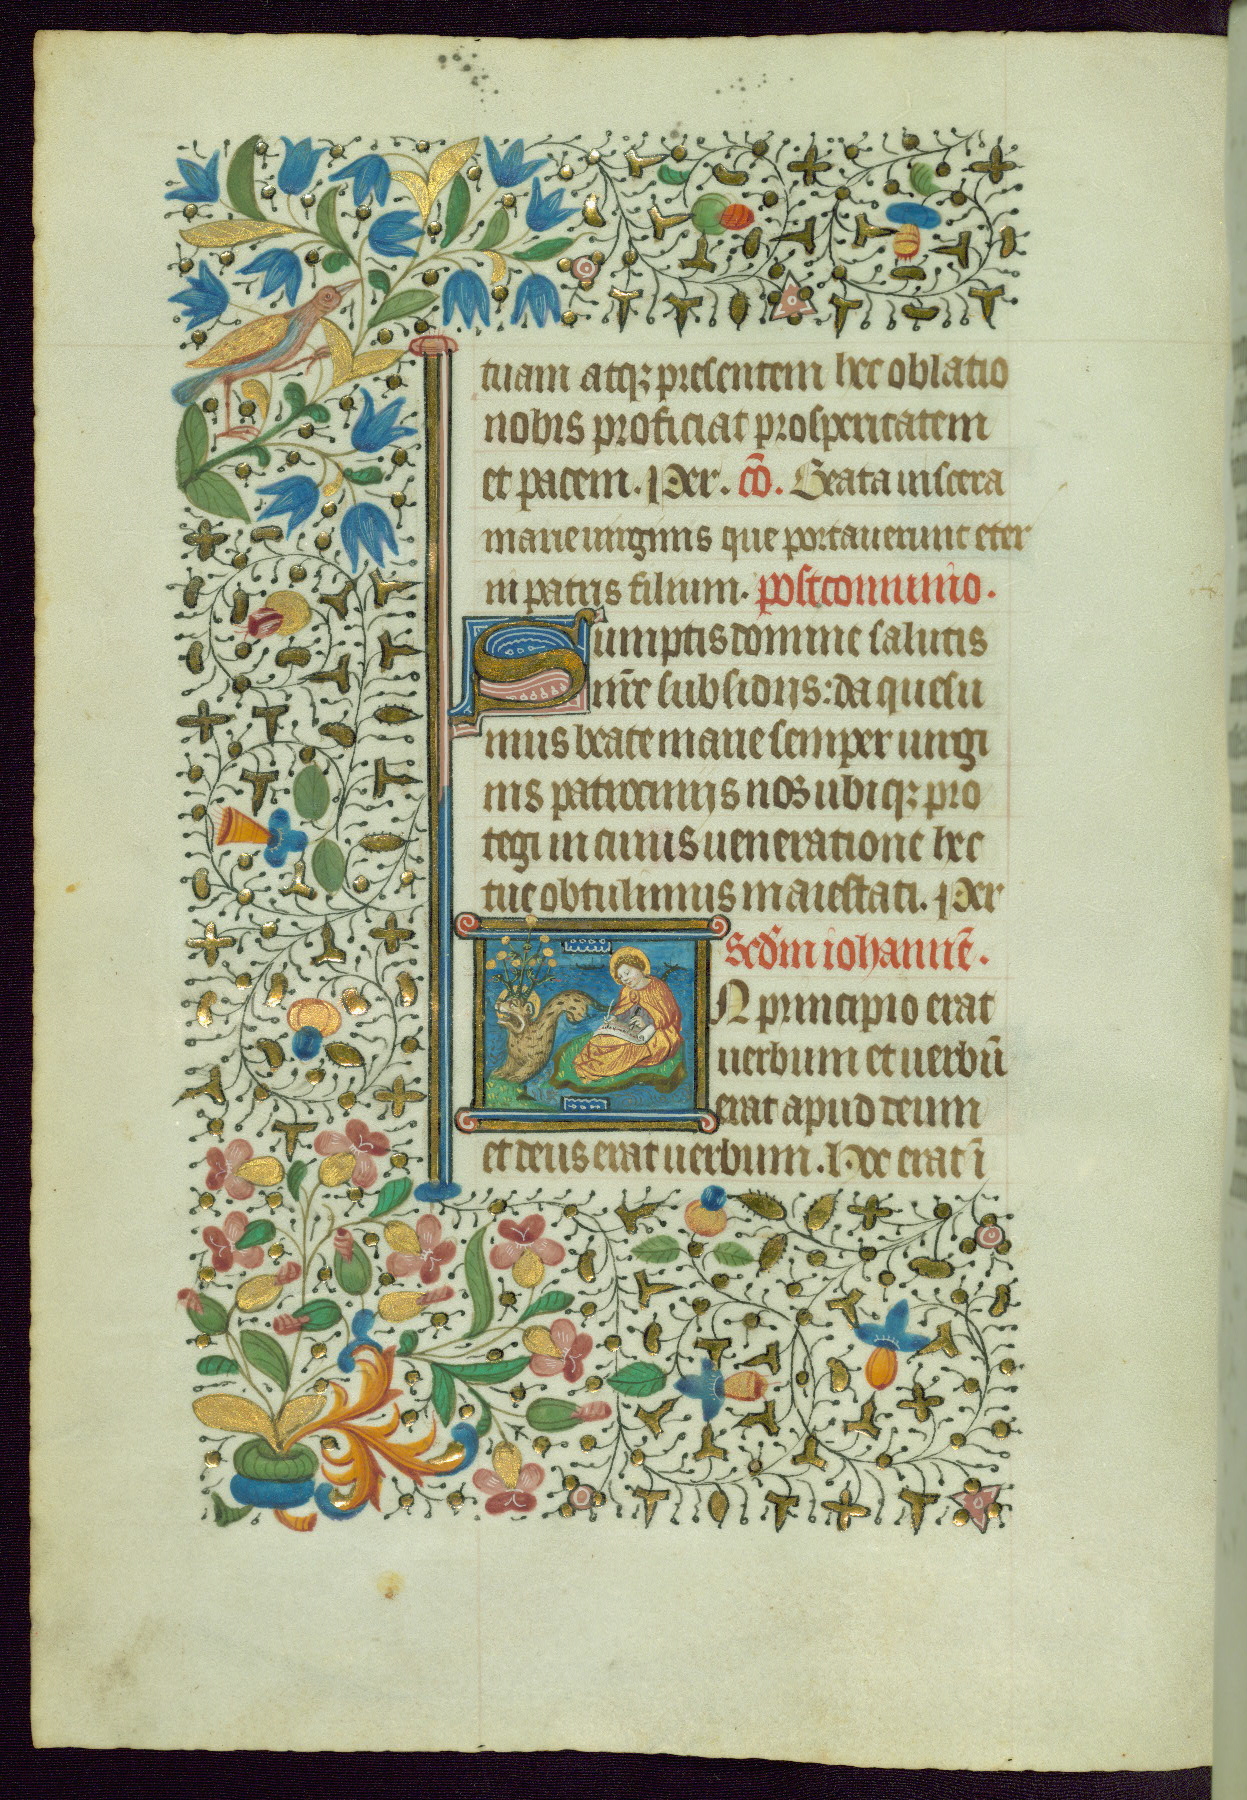 tuam atqꝫ presentem hec oblatio
nobis proficiat prosperitatem
et pacem. Per. cō. Beata viscera
marie uirginis que portauerunt eter
ni patris filium. postcomunio.
Sumptis domine salutis
nr̄e subsidijs: da quesu
mus beate marie semper uirgi
nis patrocinijs nos ubiqꝫ pro
tegi in cuius ueneratione hec
tue obtulimus maiestati. Per
Secd'm iohannē.
IN principio erat
uerbum et uerbū
erat apud deum
et deus erat uerbum. Hoc erat ī